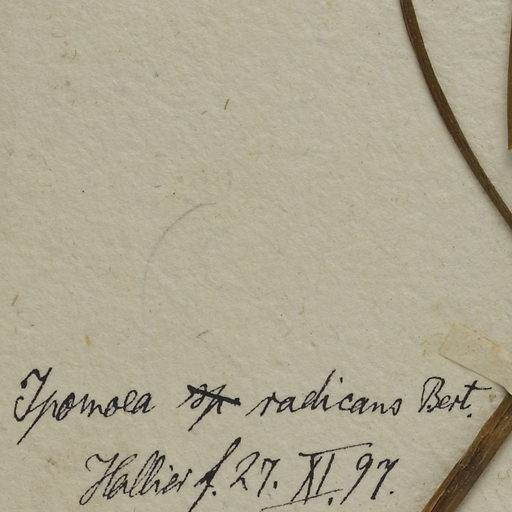 Ipomoea sp radicans Bert.
Hallier f. 27. XI. 97.